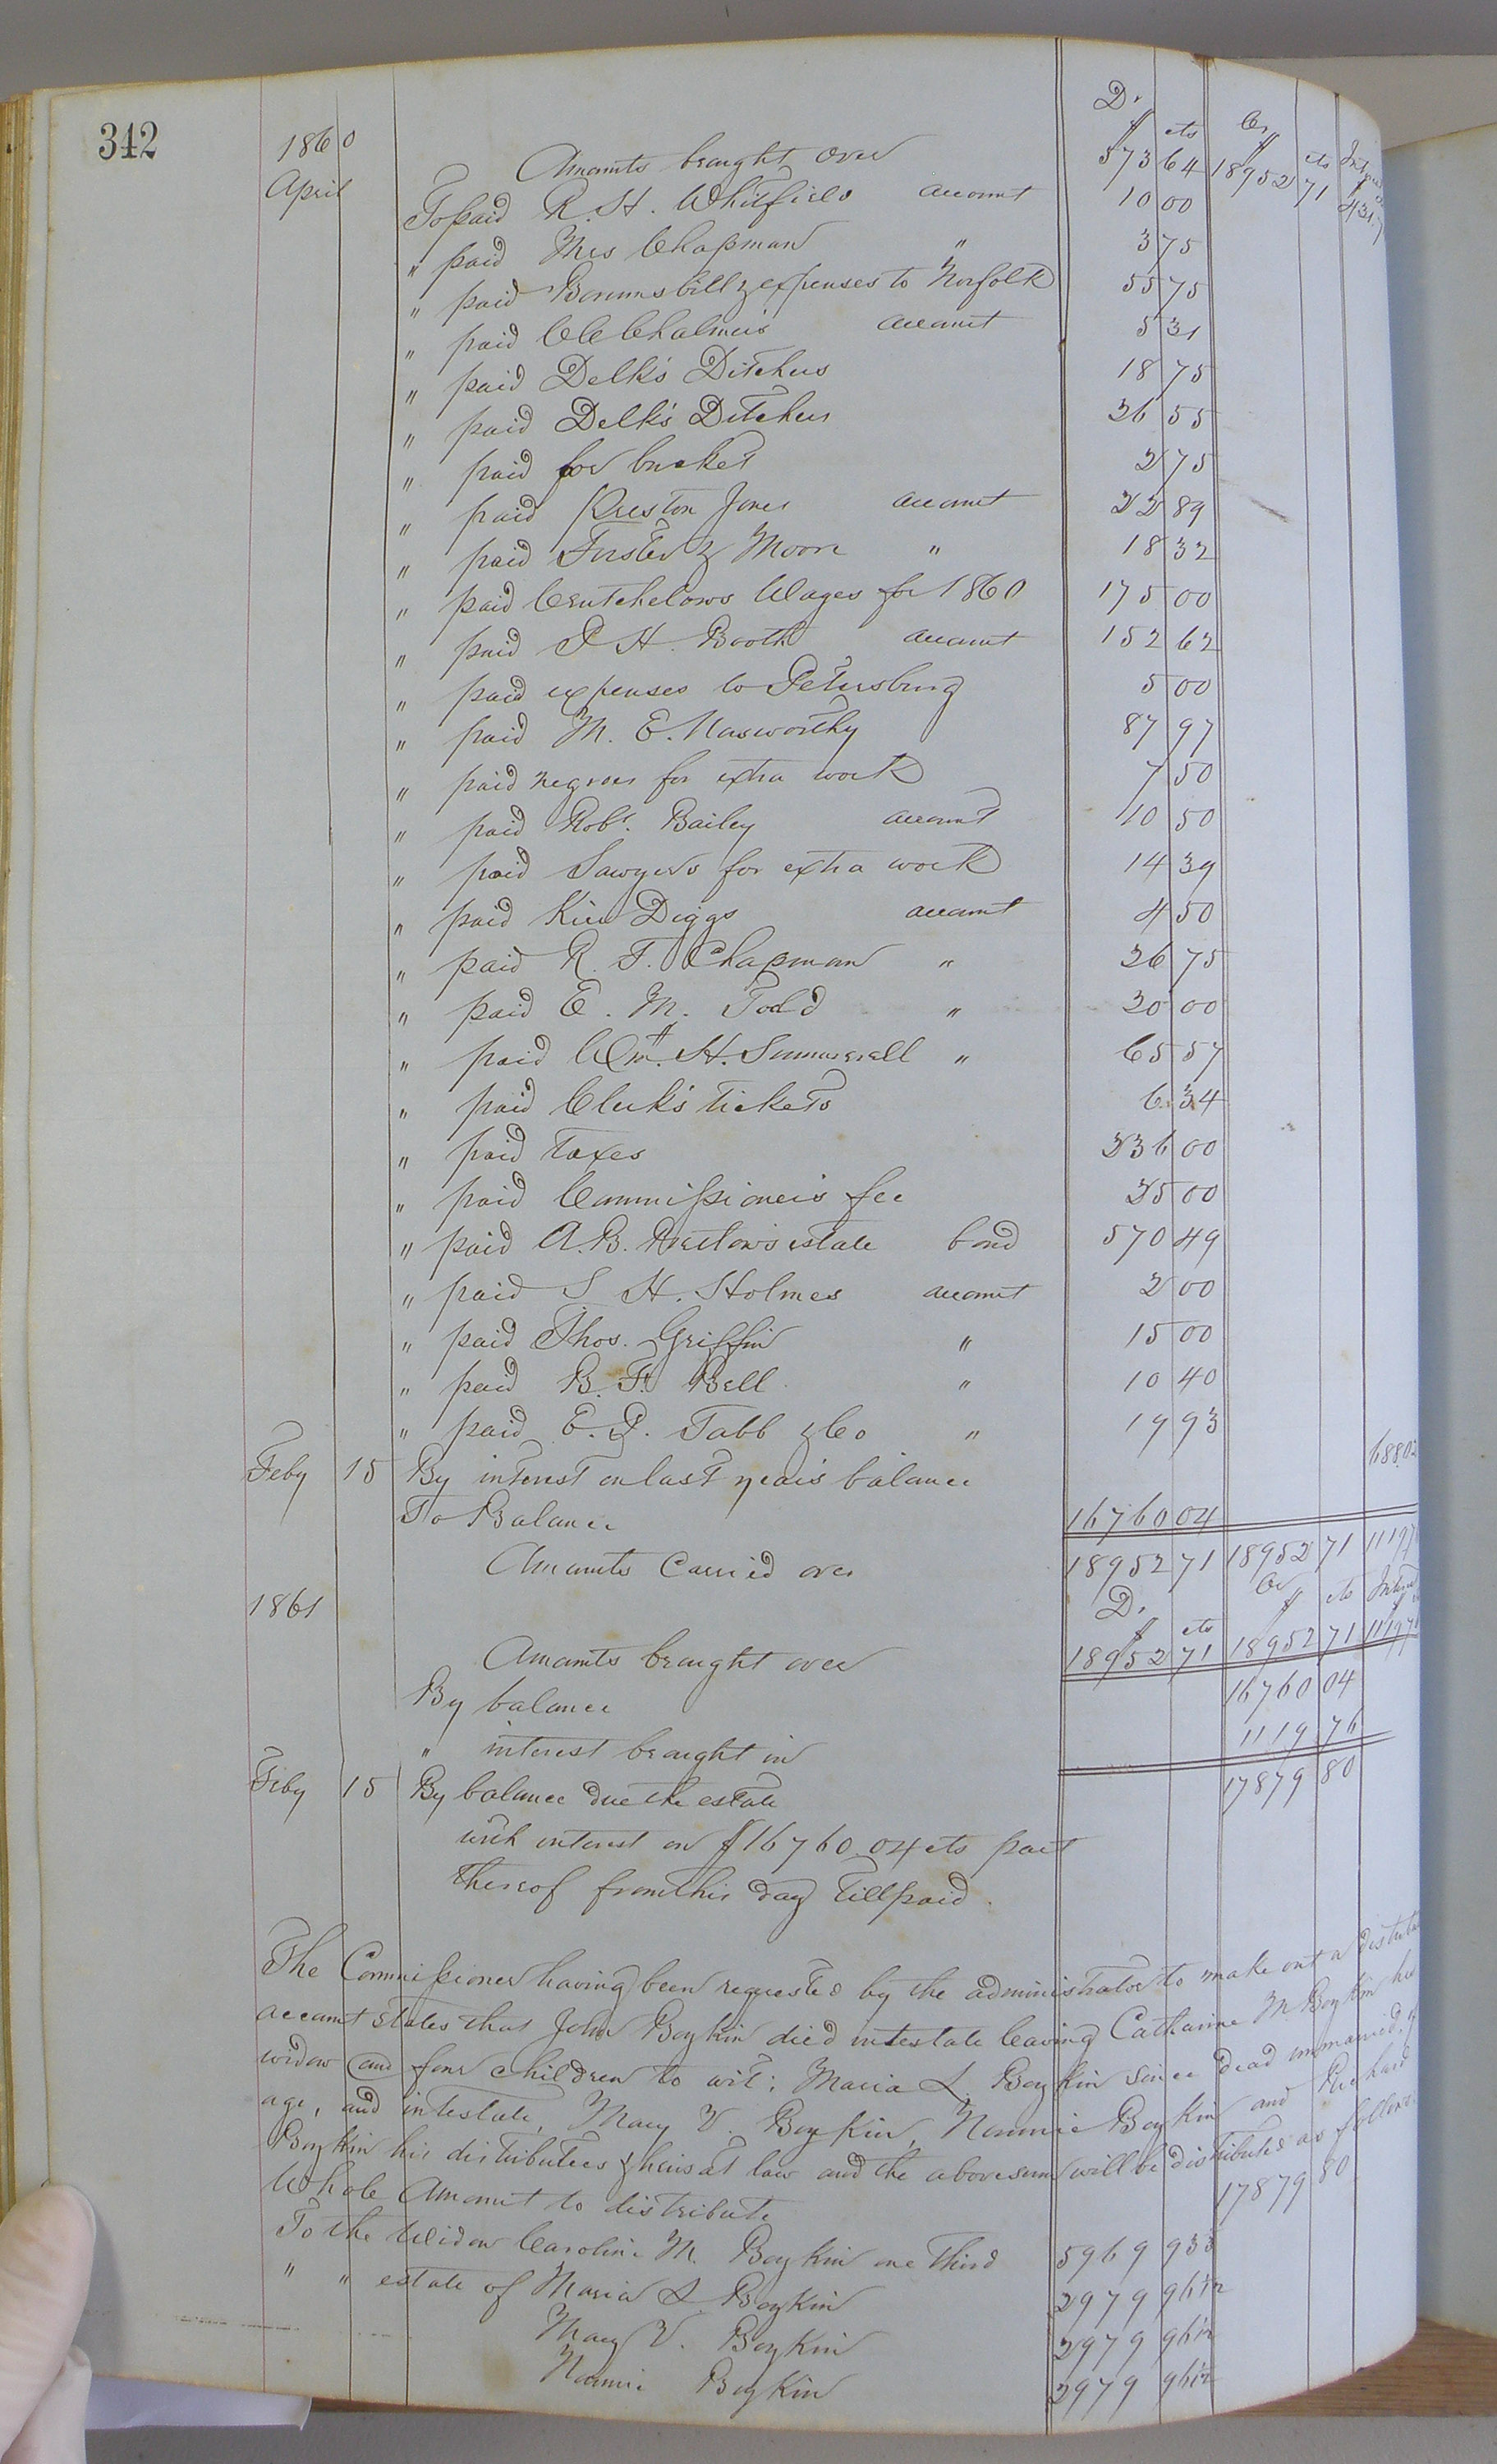 342
D. Cr
1860 $ cts $ cts
Amounts brought over 573 64 18952 71 431.7
April To paid R. H. Whitfield account 10 00
" paid Mrs Chapman " 3 75
" paid Borums bill & expenses to Norfolk 55 75
" paid C C Chalmers account 5 31
" paid Delk's Ditchers 18 75
" paid Delk's Ditchers 26 55
" paid for bucket 2 75
" paid Preston Jones account 22 89
" paid Foster & Moore " 18 32
" paid Crutchelows Wages for 1860 175 00
" paid P H. Booth account 152 62
" paid expenses to Petersburg 5 00
" paid M. E. Nasworthy 87 97
" paid negroes for extra work 7 50
" paid Robt. Bailey account 10 50
" paid Sawyers for extra work 14 39
" paid Diggs account 4 50
" paid R. F. Chapman " 26 75
" paid E. M. Todd " 20 00
" paid Wm. H. Summerell " 65 57
" paid Clerk's tickets 6 34
" paid taxes 236 00
" paid Commissioner's fee 25 00
" paid A. B. estate bond 570 49
" paid S H. Holmes account 2 00
" paid Thos. Griffin " 15 00
" paid B. F. Bell " 10 40
" paid E. P. Tabb & Co " 19 93
Feby 15 By interest on last year's balance 688.02
To Balance 16760 04
Amounts Carried over 18952 71 18952 71 1119.7
1861 D. Cr
$ cts $ cts
Amounts brought over 18952 71 18952 71 1119.7
By balance 16760 04
" interest brought in 1119 76
Feby 15 By balance due the estate 17879 80
with interest on $16760.04 cts part
thereof from this day till paid.
The Commissioner having been requested by the administrator to make out a
account states that John Boykin died intestate leaving Catharine M. Boykin his
widow and four children to wit: Maria L. Boykin since dead unmarried,
age, and intestate, Mary V. Boykin, Nannie Boykin and Richard
Boykin his distributees & heirs at law and the above sum will be distributed as follows
Whole Amount to distribute 17879 80
To the Widow Caroline M. Boykin one third 5969 93
" " estate of Maria L Boykin 2979 96 1/2
Mary V. Boykin 2979 96 1/2
Nannie Boykin 2979 96 1/2